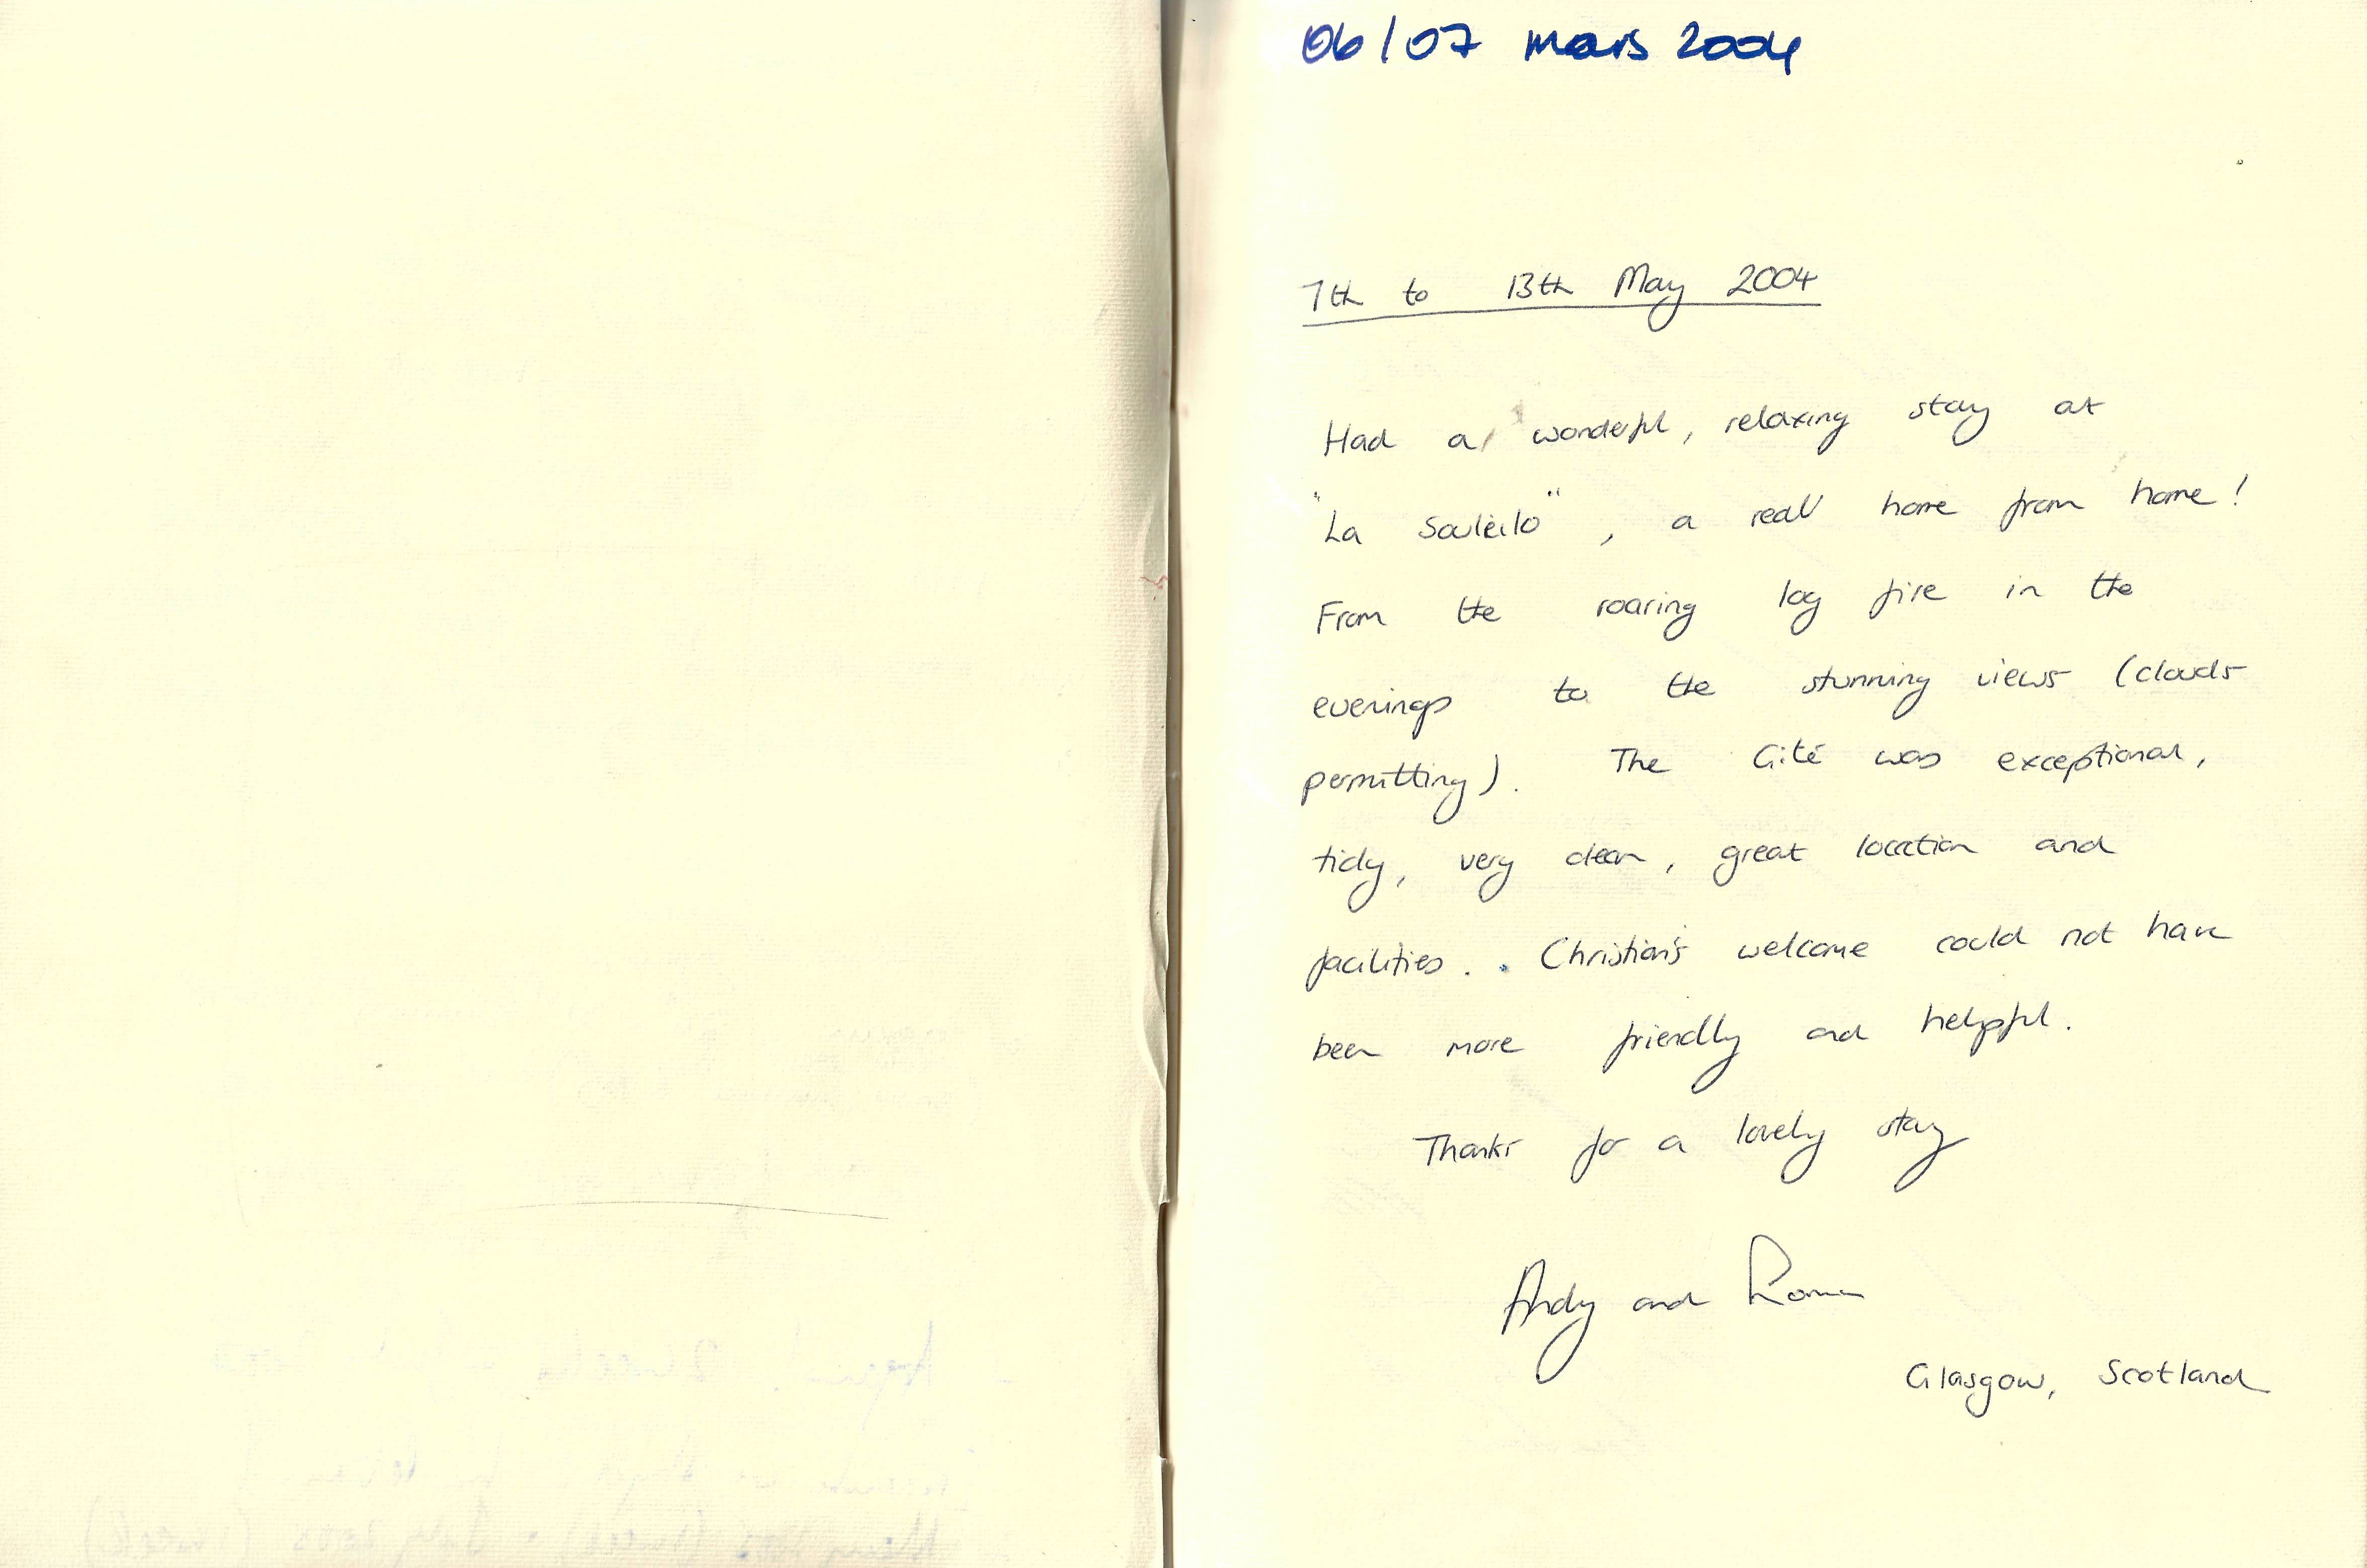 06/07 mars 2004
7th to 13th May 2004
Had a wonderful, relaxing stay at
"La Souleilo", a real home from home!
From the roaring log fire in the
evenings to the stunning views (clouds
permitting). The Gité was exceptional,
tidy, very clean, great location and
facilities. Christian's welcome could not have
been more friendly and helpful.
Thanks for a lovely stay
Andy and
Glasgow, Scotland